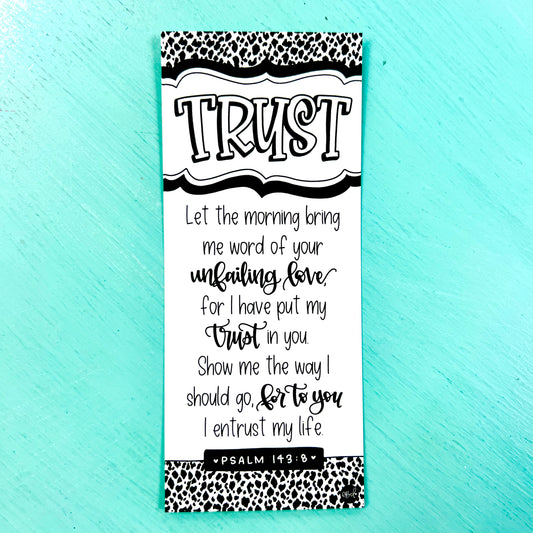 TRUST
Let the morning bring
me word of your
unfailing love,
for I have put my
trust in you.
Show me the way I
should go, for to you
I entrust my life.
♥PSALM 143:8♥